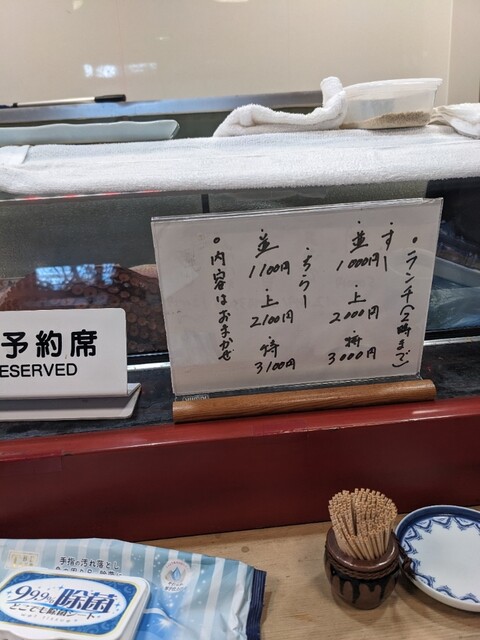 ○ランチ(2時まで)
すし
・並
1000円
・上
2000円
・特
3000円
ちらし
・並
1100円
・上
2100円
・特
3100円
○内容はおまかせ
予約席
ESERVED
手指の汚れ落とし
99.9%除菌
どこでも除菌シート